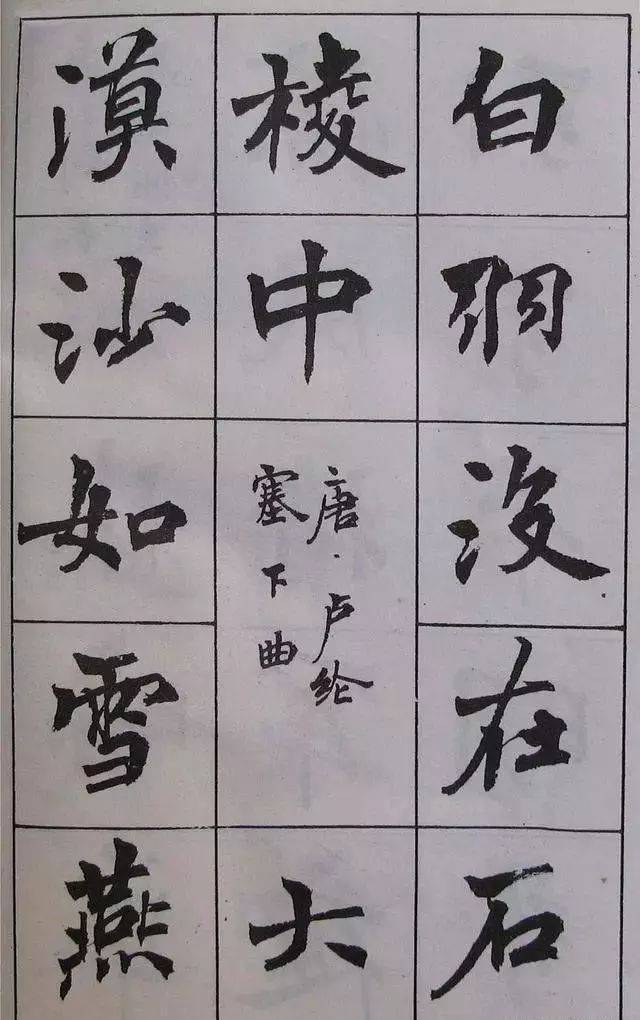 白羽没在石
棱中
唐·卢纶
塞下曲
大
漠沙如雪燕